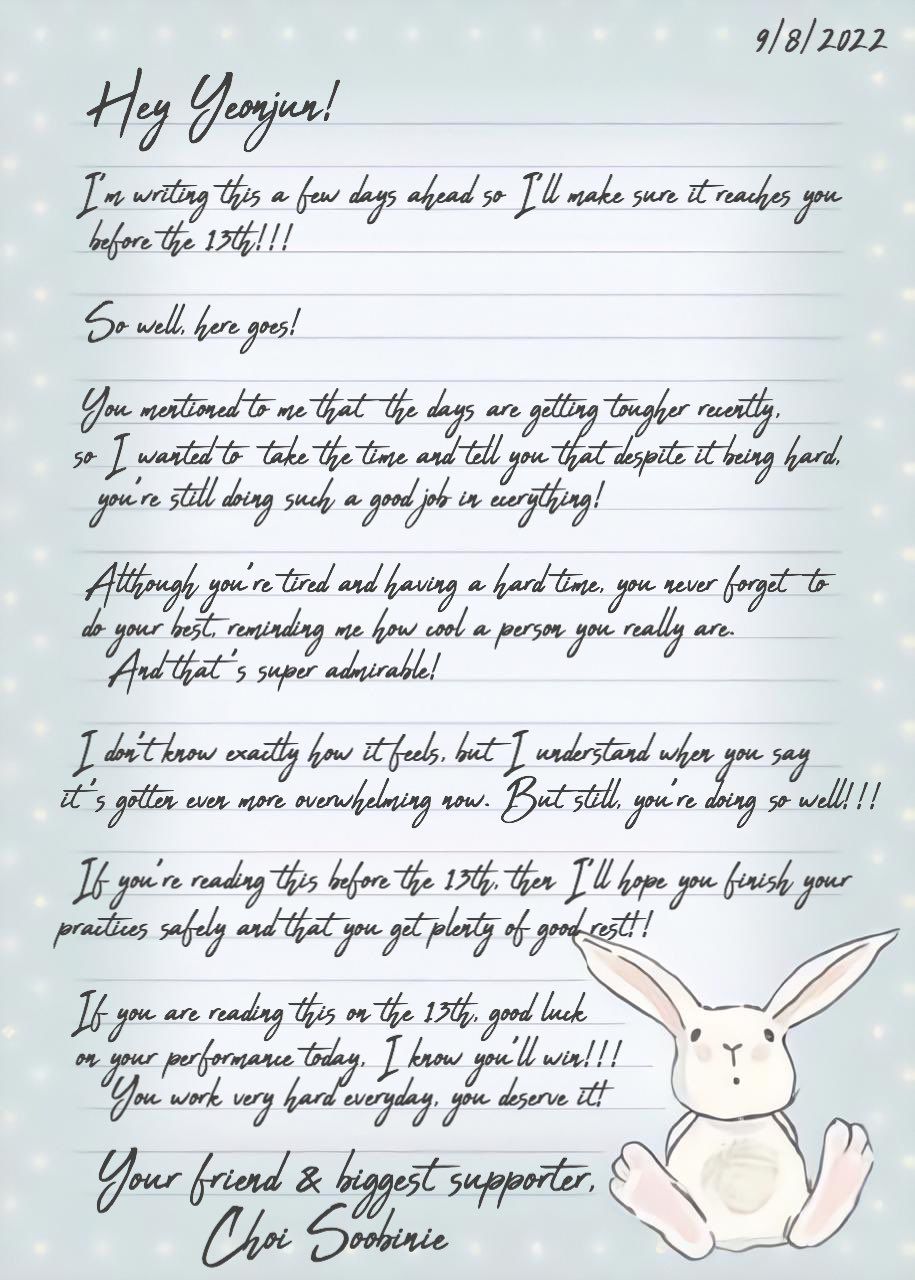 9/8/2022
Hey Yeonjun!
I'm writing this a few days ahead so I'll make sure it reaches you
before the 13th!!!
So well, here goes!
You mentioned to me that the days are getting tougher recently,
so I wanted to take the time and tell you that despite it being hard,
you're still doing such a good job in everything!
Although you're tired and having a hard time, you never forget to
do your best, reminding me how cool a person you really are.
And that's super admirable!
I don't know exactly how it feels, but I understand when you say
it's gotten even more overwhelming now. But still, you're doing so well!!!
If you're reading this before the 13th, then I'll hope you finish your
practices safely and that you get plenty of good rest!!
If you are reading this on the 13th, good luck
on your performance today, I know you'll win!!!
You work very hard everyday, you deserve it!
Your friend & biggest supporter,
Choi Soobinie